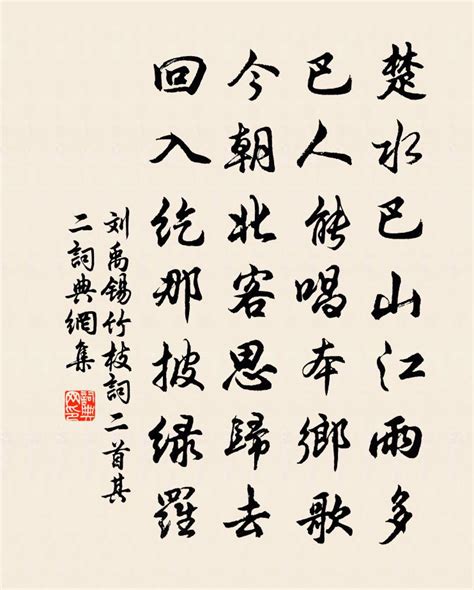 楚水巴山江雨多
巴人能唱本鄉歌
今朝北客思歸去
回入紇那披绿羅
刘禹锡竹枝詞二首其
二詞典網集
詞典网印